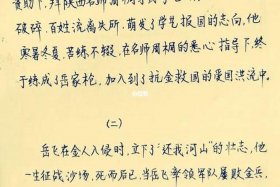 资助下，拜陕西名师周桐
破碎，百姓流离失所，萌发了学艺报国的志向，他
寒暑冬夏，苦练不辍，在名师周桐的悉心指导下，终
于练成了岳家枪，加入到了抗金救国的爱国洪流中。
（二）
岳飞在金人入侵时，立下了“还我河山”的壮志，他
一生征战沙场，死而后已，当岳飞率领军队屡败金兵，